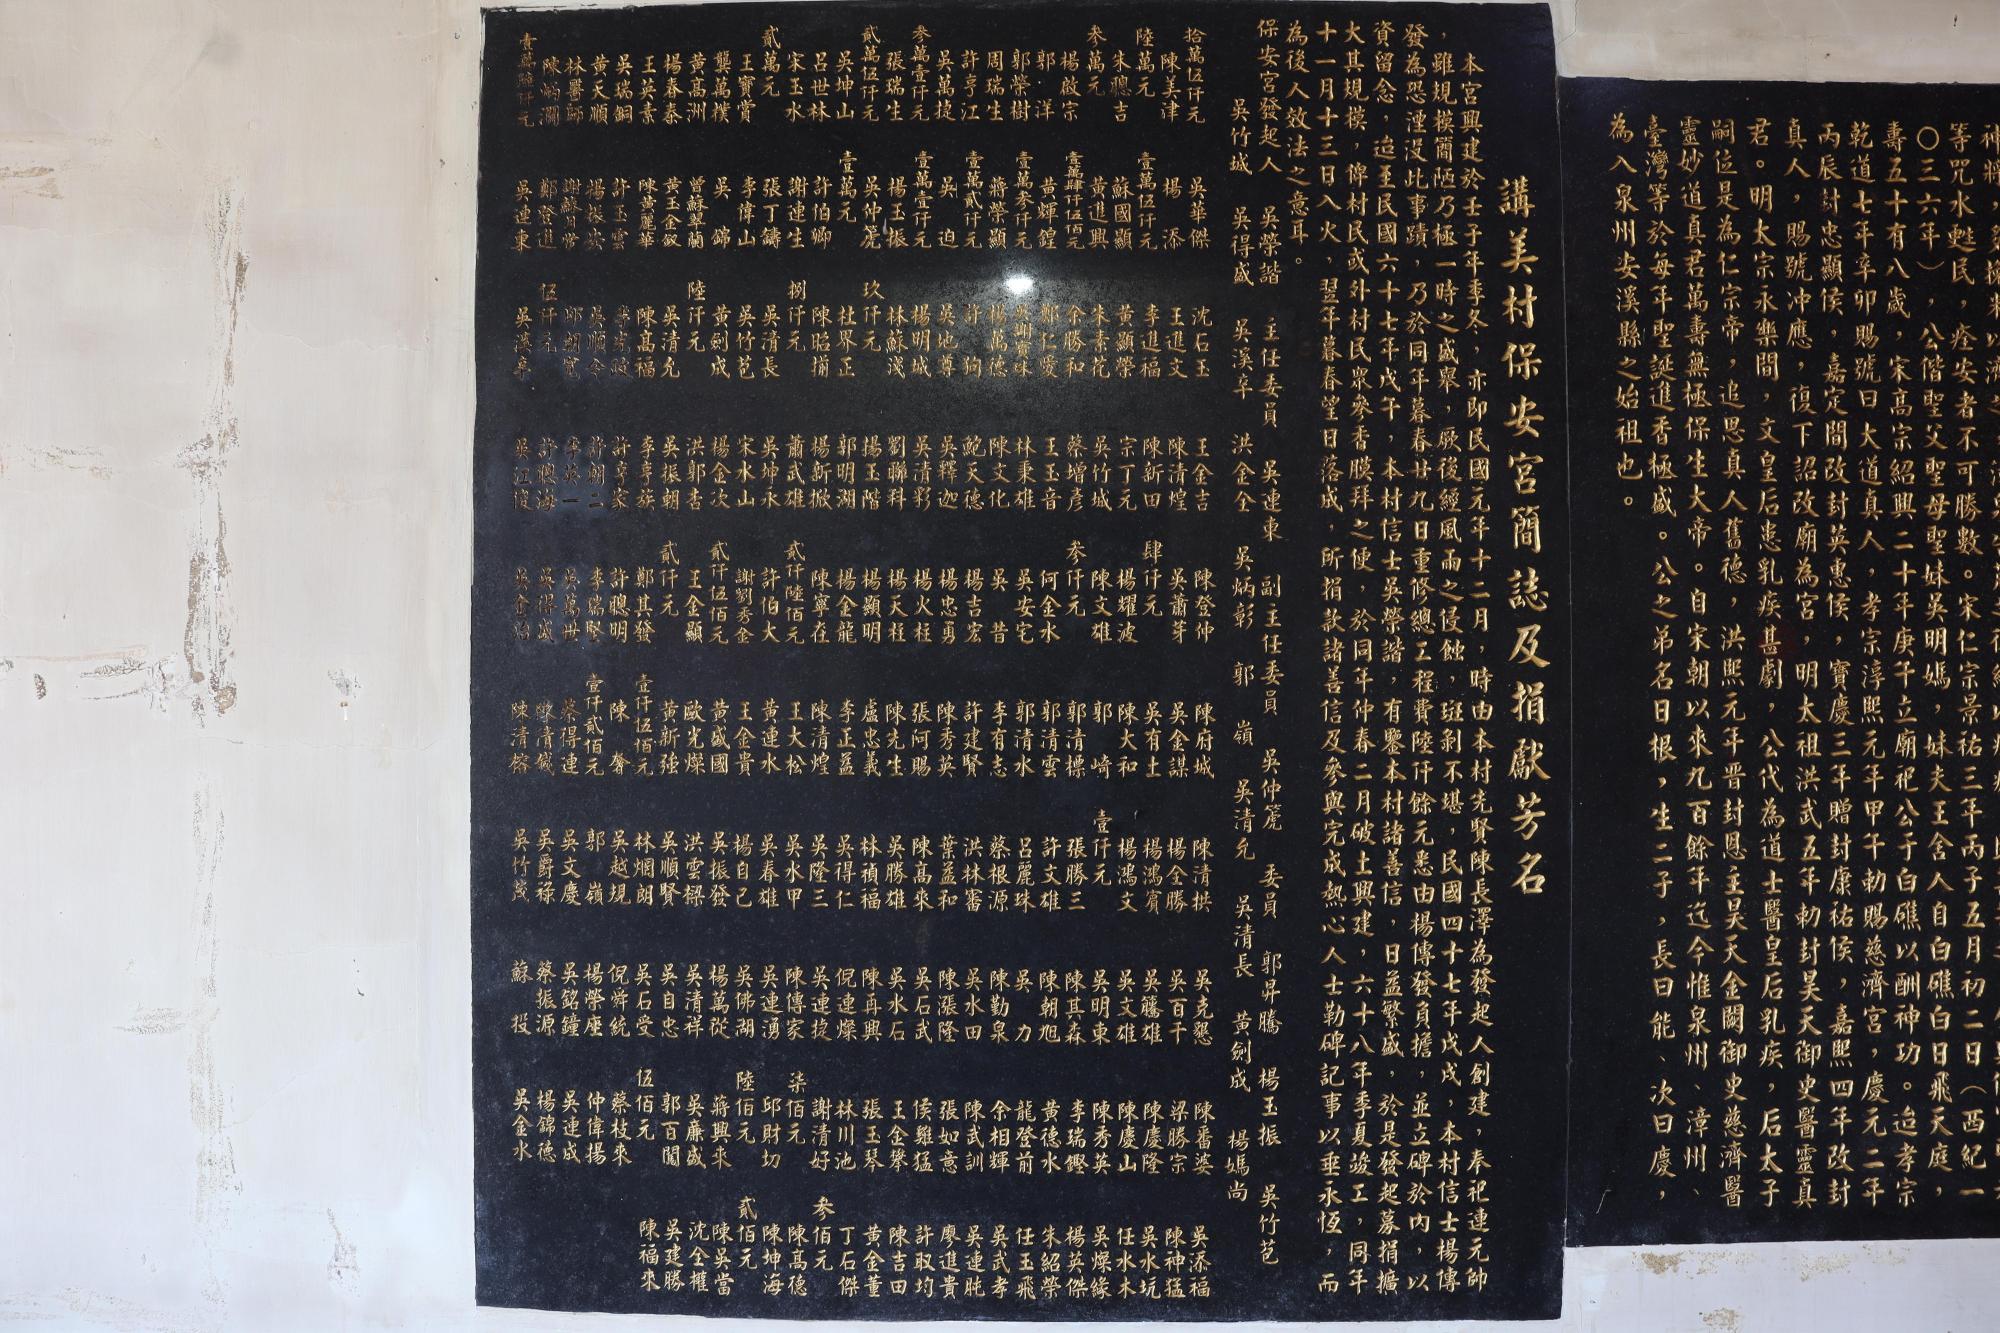 神將，
等咒水甦民，痊安者不可勝數。宋仁宗景祐三年丙子五月初二日（西紀一
〇三六年），公偕聖父聖母聖妹吳明媽，妹夫王舍人自白礁白日飛天庭，
壽五十有八歲，宋高宗紹興二十年庚午立廟祀公于白礁以酬神功。迨孝宗
乾道七年辛卯賜號曰大道真人，孝宗淳熙元年甲午勅賜慈濟宮，慶元二年
丙辰封忠顯侯，嘉定間改封英惠侯，寶慶三年贈封康祐侯，嘉熙四年改封
真人，賜號冲應，復下詔改廟為宮，明太祖洪武五年勅封昊天御史醫靈真
君。明太宗永樂間，文皇后患乳疾甚劇，公代為道士醫皇后乳疾，后太子
嗣位是為仁宗帝，追思真人舊德，洪熙元年晋封恩主昊天金闕御史慈濟醫
靈妙道真君萬壽無極保生大帝。自宋朝以來九百餘年迄今惟泉州、漳州、
臺灣等於每年聖誕進香極盛。公之弟名日根，生二子，長曰能、次曰慶，
為入泉州安溪縣之始祖也。
講美村保安宮簡誌及捐獻芳名
本宮興建於壬子年季冬，亦即民國元年十二月，時由本村先賢陳長澤為發起人創建，奉祀連元帥
，雖規模簡陋乃極一時之盛舉，厥後經風雨之侵蝕，斑剝不堪，民國四十七年戊戌，本村信士楊傳
發為恐湮沒此事蹟，乃於同年暮春廿九日重修總工程費陸仟餘元悉由楊傳發負擔，並立碑於內，以
資留念，迨至民國六十七年戊午，本村信士吳榮諧，有鑒本村諸善信，日益繁盛，於是發起募捐擴
大其規模，俾村民或外村民眾參香膜拜之便，於同年仲春二月破土興建，六十八年季夏竣工，同年
十一月十三日入火，翌年暮春望日落成，所捐款諸善信及參與完成熱心人士勒碑記事以垂永恆，而
為後人效法之意耳。
保安宮發起人　吳榮諧　主任委員　吳連東　副主任委員　吳仲箎　委員　郭昇騰　楊玉振　吳竹苞
吳竹城　吳得盛　吳溪卒　洪金全　吳炳彰　郭　嶺　吳清允　吳清長　黃劍成　楊媽尚
拾萬伍仟元　吳華傑　沈石玉　王金吉　陳登仲　陳府城　陳清拱　吳克懇　陳番婆　吳添福
陳美津　楊　添　王進文　陳清煌　吳蕭芽　吳金謀　楊全勝　吳百干　梁勝宗　陳神猛
陸萬元　壹萬伍仟元　李進福　陳新田　肆仟元　吳有土　楊鴻賓　吳騰雄　陳慶隆　吳水坑
朱聰吉　蘇國顯　黃顯榮　宗丁元　楊耀波　陳大和　楊鴻文　吳文雄　陳慶山　任水木
參萬元　黃進興　朱素花　吳竹城　陳文雄　郭　崎　壹仟元　吳明東　陳秀英　吳燦緣
楊啟宗　壹萬肆仟伍佰元　余勝和　蔡增彥　參仟元　郭清標　張勝三　陳其森　李瑞鏗　楊英傑
郭　洋　黃輝鍠　鄭仁愛　王玉音　何金水　郭清雲　許文雄　陳朝旭　黃德水　朱紹榮
郭榮樹　壹萬參仟元　林秉雄　吳安宅　郭清水　呂麗珠　吳　力　龍登前　任玉飛
周瑞生　蔣榮顯　楊萬德　陳文化　吳　昔　李有志　蔡根源　陳勤泉　余相輝　吳武孝
許亨江　壹萬貳仟元　許　狗　鮑天德　楊吉宏　許建賢　洪林審　吳水田　陳武訓　吳連盹
吳萬捷　吳　迫　吳地尊　吳釋迦　楊忠勇　陳秀英　葉益和　陳漲隆　張如意　廖進貴
參萬壹仟元　壹萬壹仟元　楊明城　吳清彩　楊火柱　張阿賜　陳高來　吳石武　侯雞猛　許取均
張瑞生　楊玉振　林蘇淺　劉聯科　楊天柱　陳先生　吳勝雄　吳水石　王金攀　陳吉田
貳萬伍仟元　吳仲箎　玖仟元　楊玉階　楊顯明　盧忠義　林禎福　陳再興　張玉琴　黃金董
吳坤山　壹萬元　杜界正　郭明湖　楊金龍　李正益　吳得仁　倪連燦　林川池　丁石傑
呂世林　許伯卿　陳昭揃　楊新掀　陳寧在　陳清煌　吳隆三　吳連捷　謝清好　參佰元
宋玉水　謝連生　捌仟元　蕭武雄　貳仟陸佰元　王大松　吳水甲　陳傳家　柒佰元　陳高德
貳萬元　張丁鑄　吳清長　吳坤永　許伯大　黃連水　吳春雄　吳連湧　邱財切　陳坤海
王寶賞　李偉山　吳竹苞　宋水山　謝劉秀金　王金貴　楊自己　吳佛湖　陸佰元　貳佰元
龔萬樸　吳　錦　黃劍成　楊金次　貳仟伍佰元　黃盛國　吳振發　楊萬從　蔣興來　陳吳當
黃高洲　曾蘇翠蘭　陸仟元　洪郭杏　王金顯　歐光燦　洪雲緞　吳清祥　吳廉盛　沈全權
楊春泰　黃玉金釵　吳清允　吳振朝　貳仟元　黃新強　吳順賢　吳自忠　郭百閣　吳建勝
王英素　陳黃麗華　陳高福　李享蔟　鄭其發　壹仟伍佰元　林烱朗　吳石受　伍佰元　陳福來
吳瑞銅　許玉雲　許享家　許聰明　陳　聱　吳越規　倪舜統　蔡枝來
黃天順　吳順令　許朝二　李瑞堅　壹仟貳佰元　郭　嶺　楊榮座　仲偉揚
林醫師　李英一　吳萬世　蔡得連　吳文慶　吳銘鐘　吳連成
陳炳瀾　鄭登進　伍仟元　許聰海　吳得盛　陳清鐵　吳爵祿　蔡振源　楊錦德
吳連東　吳江俊　吳金治　陳清榕　吳竹茂　蘇　投　吳金水